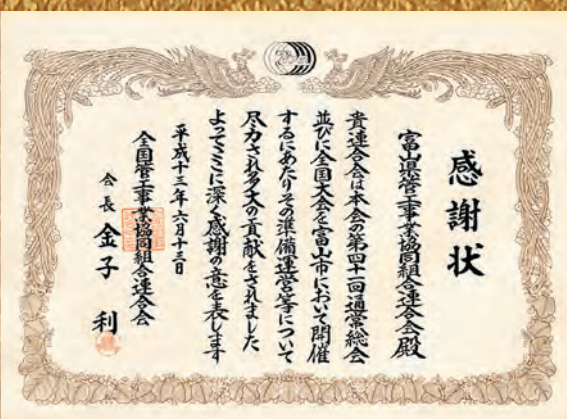 感謝状
富山県管工事業協同組合連合会殿
貴連合会は本会の第四十一回通常総会
並びに全国大会を富山市において開催
するにあたりその準備運営等について
尽力され多大の貢献をされました
よってここに深く感謝の意を表します
平成十三年六月十三日
全国管工事業協同組合連合会
会長 金子利